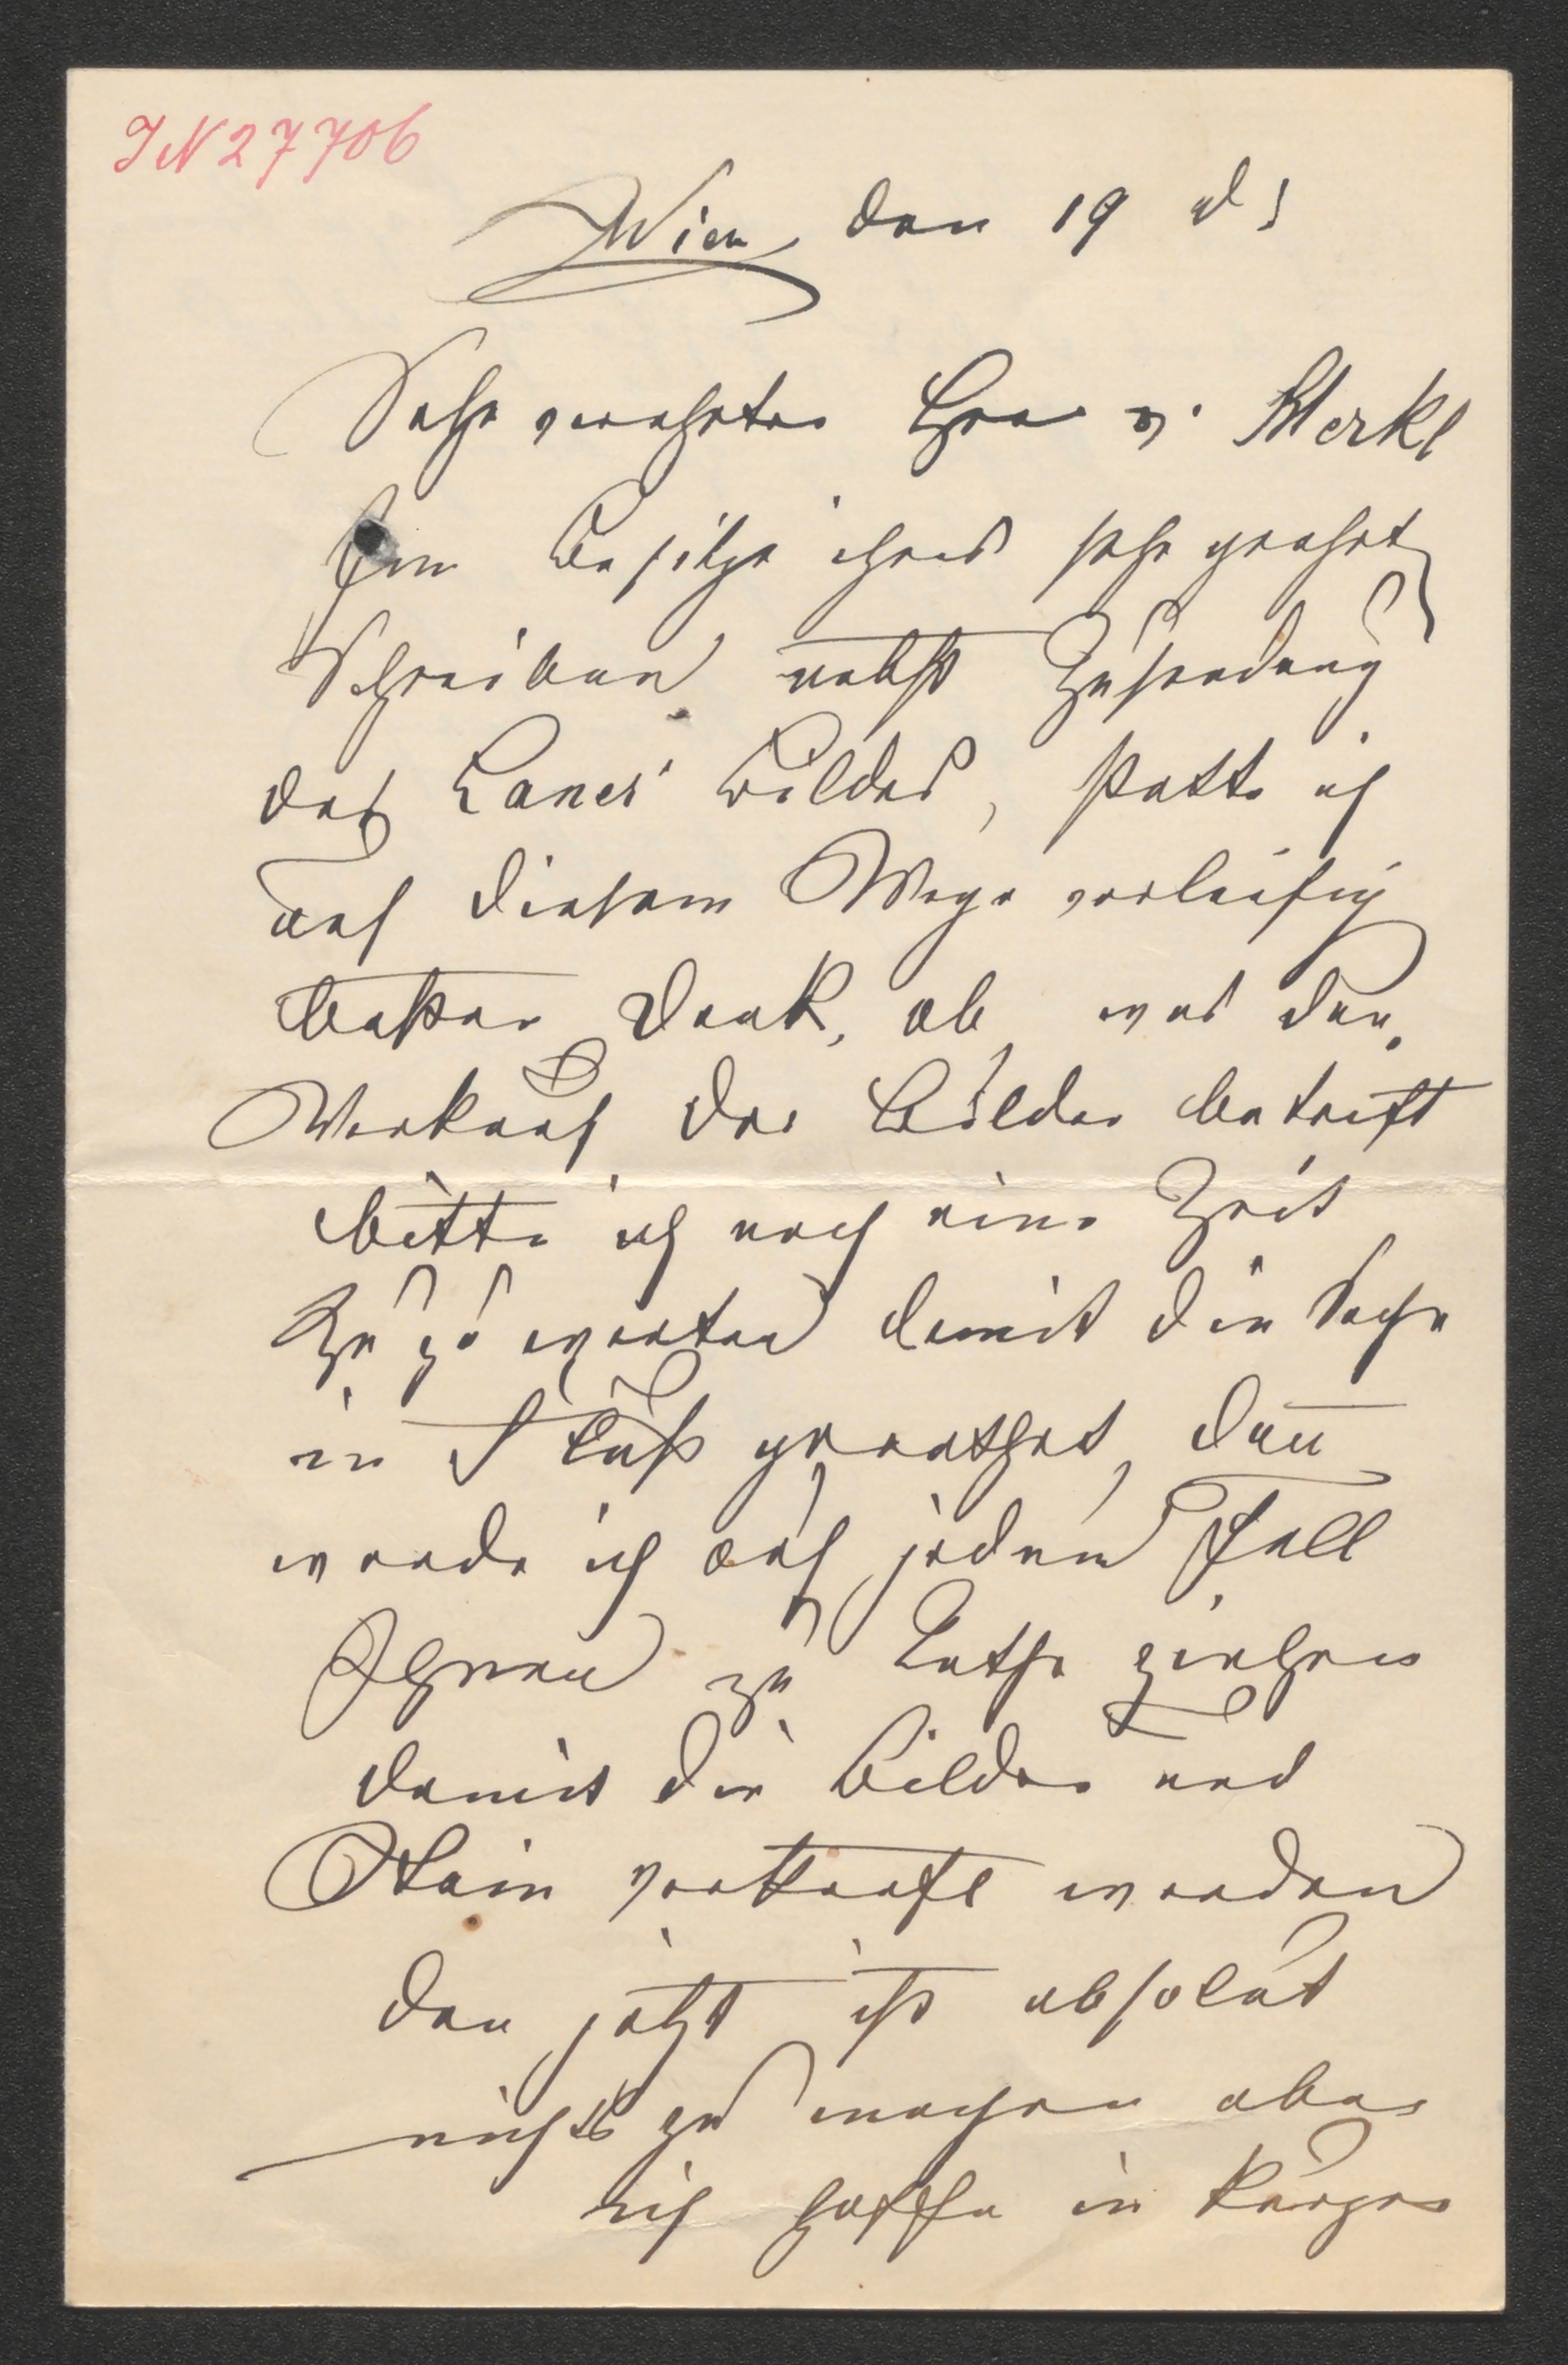 IN 27706
Wien den 19 d s
Sehr verehrter Herr v. Merkl
Im Besitze ihres sehr geehrt
Schreiben nebst Zusendung
des Bildes, statte ich
auf diesem Wege vorleifig
besten Dank, ob was den
Verkauf der Bilder betrift
bitte ich noch eine Zeit
zu zu warten damit die Sache
in Fluß gerathet, dan̄
werde ich auf jeden Fall
Ihnen zu Rathe ziehen
damit die Bilder und
verkauft werden
den jetzt ist absolut
nichts zu machen aber
ich hoffe in kurzer